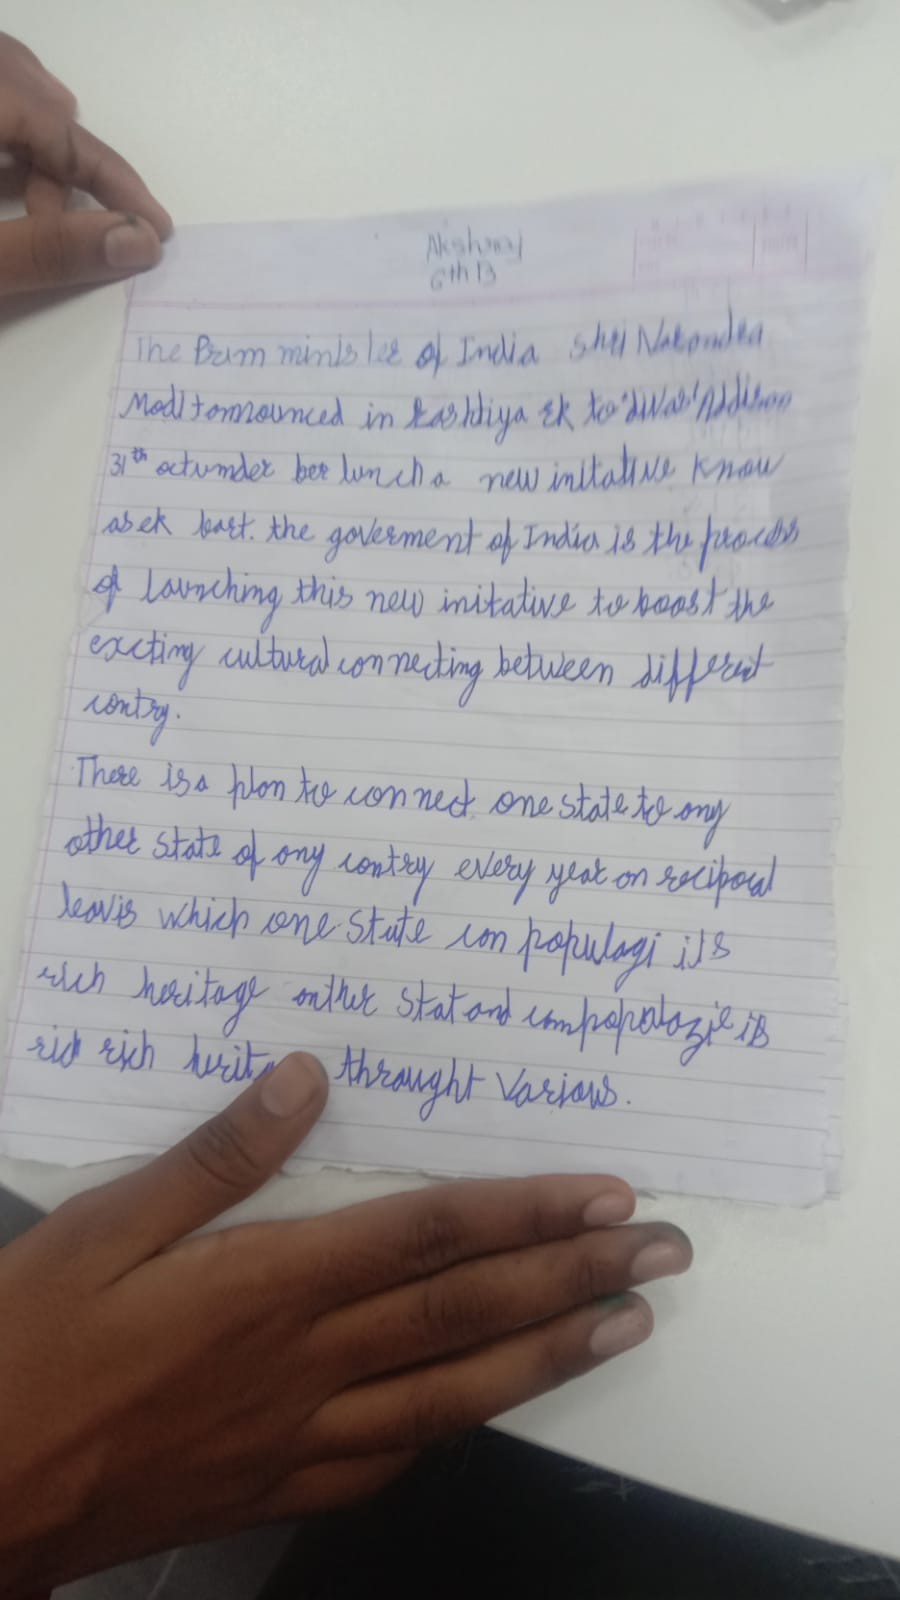 Akshraj
6th B
The Prim minister of India shri Narendra
Modi tomnounced in Rashtiya Ek ta 'diwas'
31th octumber ber lunch a new initative know
as ek bart. the goverment of India is the process
of launching this new initative to boost the
excting cultural connecting between different
contry.
There is a plan to connect one state to any
other state of any contry every year on reciporal
which one state con populagi its
rich heritage onther stat and com popolazie its
rich rich throught various.